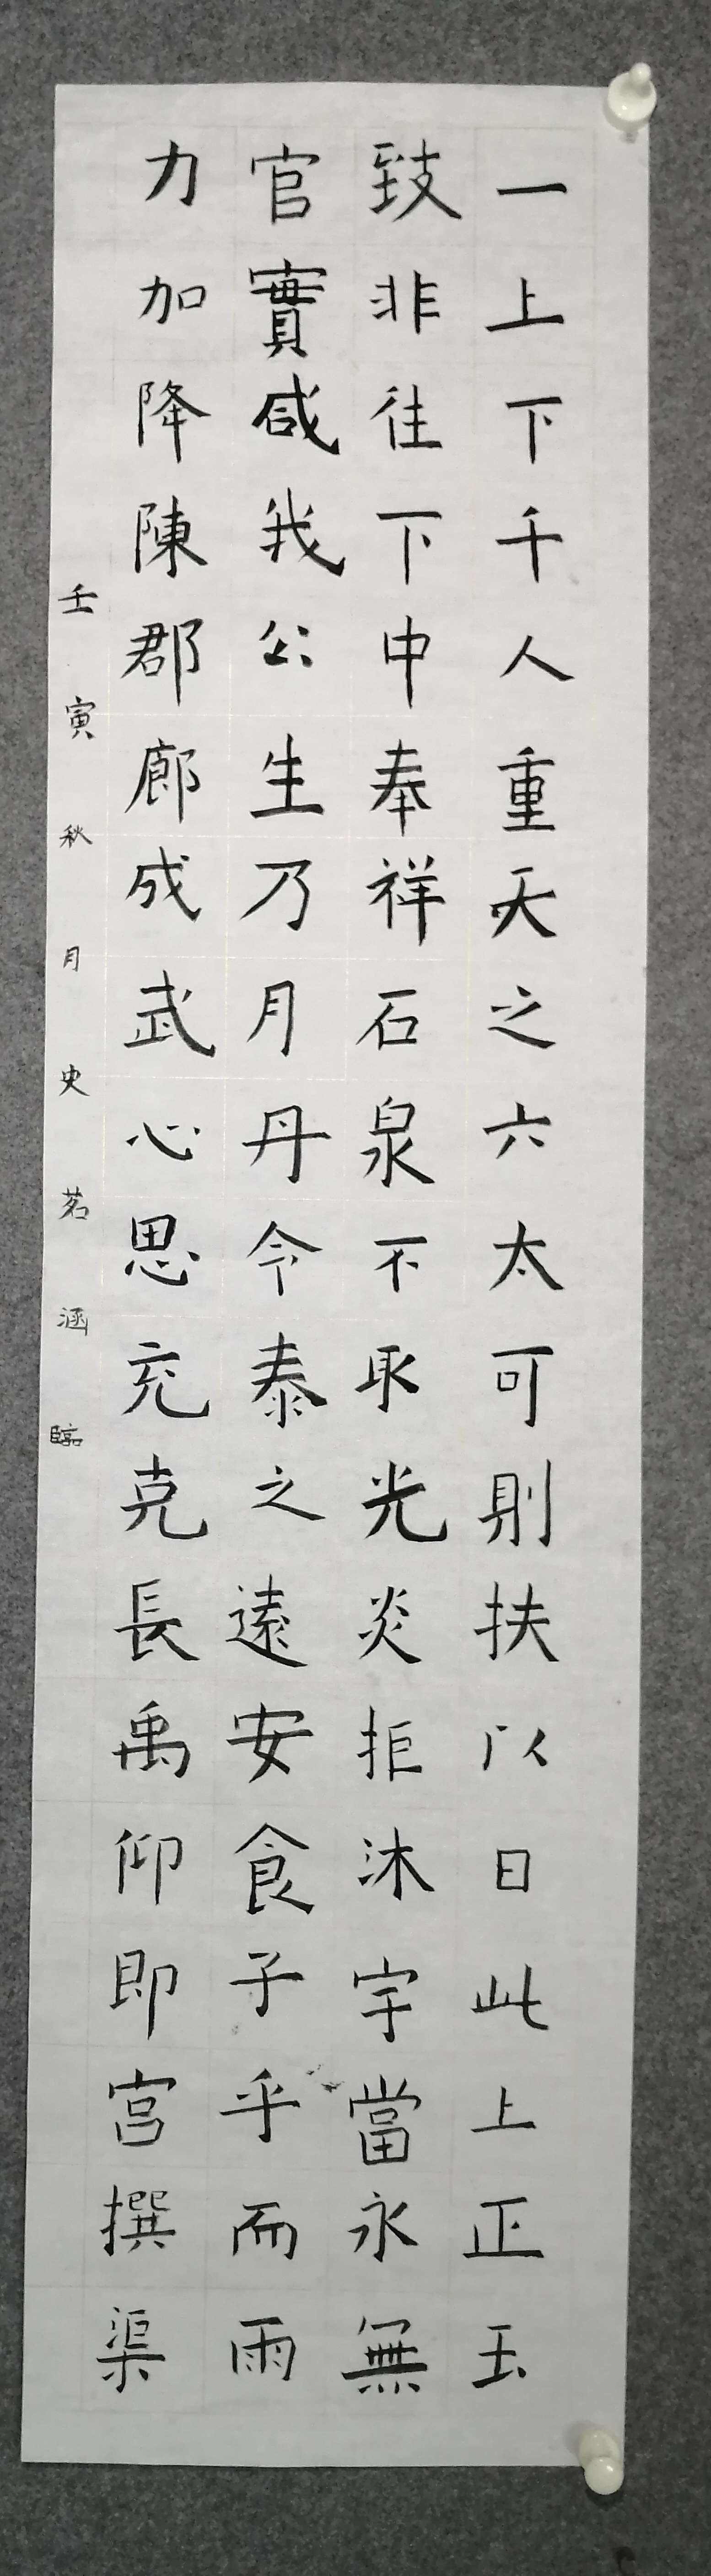 一上下千人重天之六太可則扶以日此上正玉
致非往下中奉祥石泉不取光炎拒沐宇當永無
官實咸我公生乃月丹令泰之遠安食子乎而雨
力加降陳郡廊成武心思充克長禹仰即宮撰渠
壬寅秋月史茗涵臨